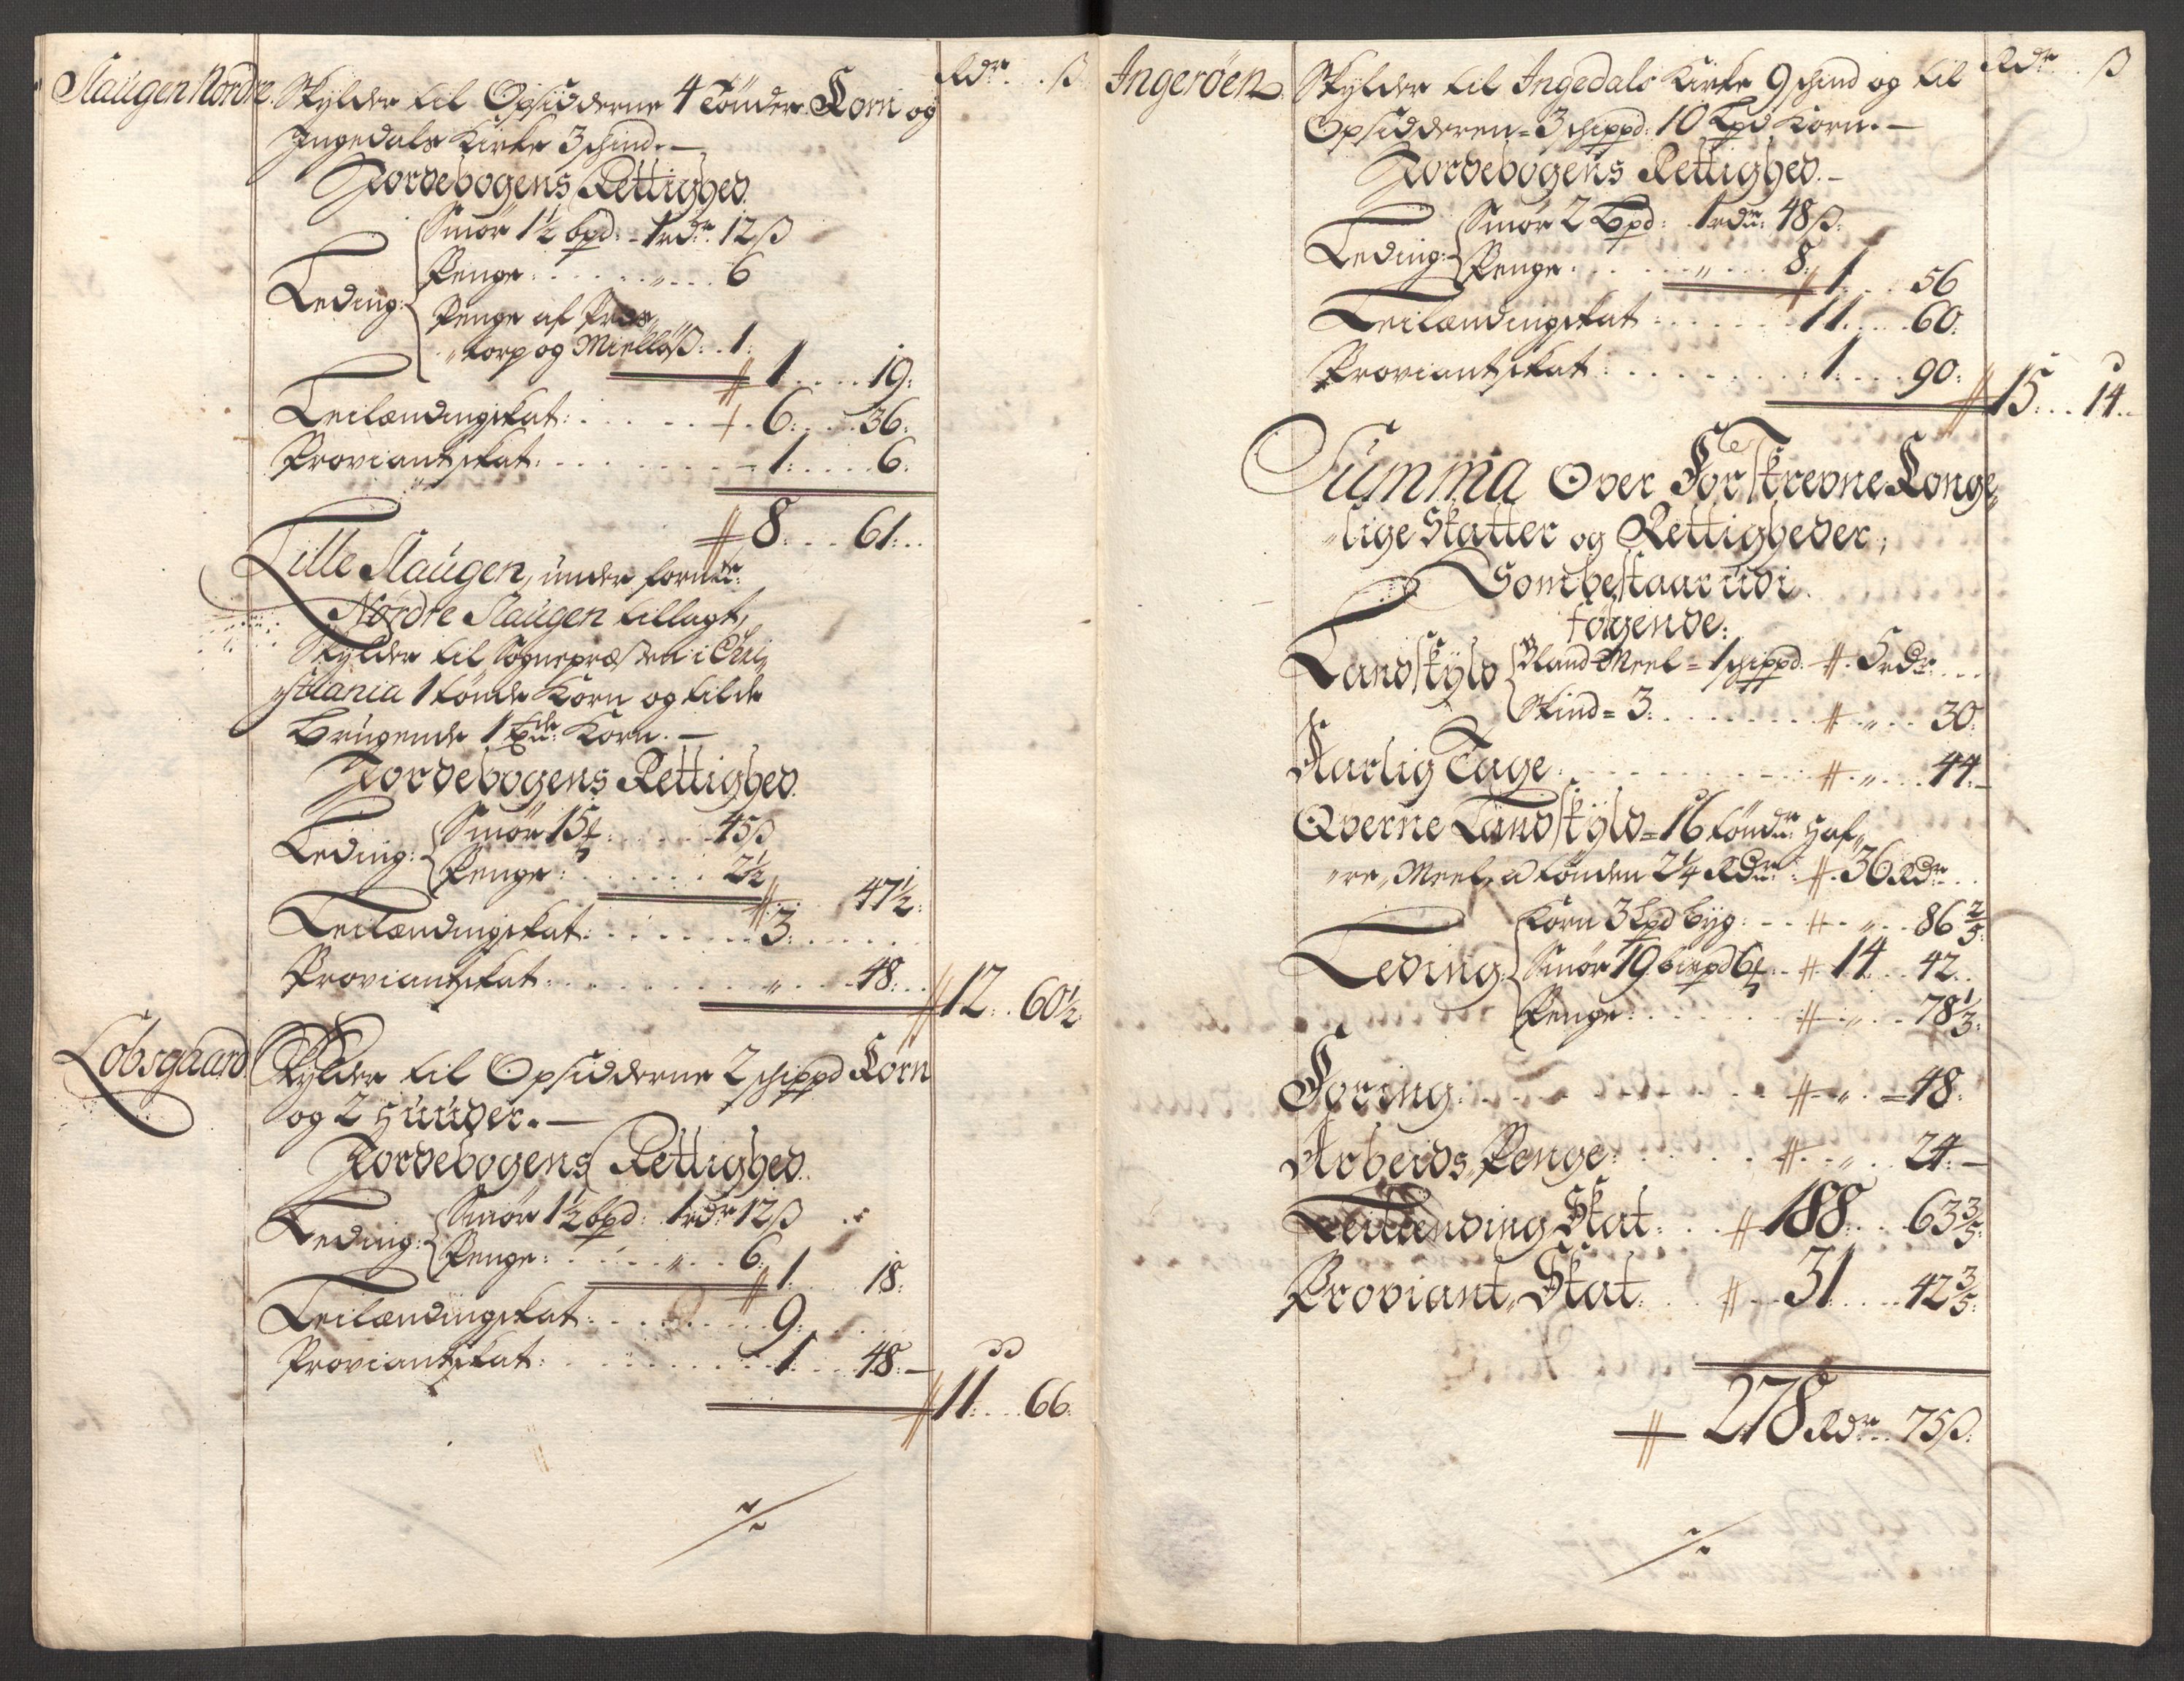 Rdr. ß
Slaugen Nordre. Skylder til Opsidderne 4 Tönder Korn og
Ingedals Kirke 3 schind. —
Jordebogens Rettighed.
Smör 1½ bpd: - 1rdr. 12ß
Leding: Penge: . . . . „ . . . 6
Penge af Pros„
„torp og Mielløß: . 1:
1 . . . . 19:
Leilændingskat: . . . . 6: . . . 36:
Proviantskat: . . . . . 1: . . . . 6:
8: . . . 61: . .
Lille Slaugen, under formte:
Nordre Slaugen tillagt,
Skylder til Sognepræsten i Chri„
„stiania 1 tönde Korn og til de
Brugende 1 Korn. —
Jordebogens Rettighed.
Leding: Smör 15 . . . . 45ß
Penge: . . . . . 2½
47½:
Leilændingskat: . . . . . 3: . . . .
Proviantskat: . . . . . „ . . . 48: . .
12: . 60½:
Lobsgaard Skylder til Opsidderne 2 schippd Korn
og 2 Huuder. —
Jordebogens Rettighed.
Leding: Smör 1½ bpd: 1rdr 12ß
Penge: . . . . „ . . 6:
1: . . . 18:
Leilændingskat: . . . . . 9: . . . .
Proviantskat: . . . . . 1: . . . 48: —
11: . . . 66:
Rdr. ß
Ingeröen. Skylder til Ingedals Kirke 9 schind og til
Opsidderen = 3 schippd: 10 Lpd Korn. —
Jordebogens Rettighed. —
Leding: Smör 2 Bpd: 1rdr: 48ß:
Penge . . . . „ . . . 8:
1 . . . 56
Leilændingskat . . . . . 11 . . . 60:
Proviantskat: . . . . . 1: . . . 90:
15: . . 14. .
Summa Over Forskrevne Konge„
„lige Skatter og Rettigheder,
Som bestaar udi
følgende:
Landskyld Bland Meel = 1 schippd: 5rdr. . .
Skind = 3: . . . . . „ . . 30:
Aarlig Tage . . . . . „ . . . 44: —
Qverne Landskyld = 16 töndr: Haf„
„re„Meel, a tönden 2¼ Rdr: 36 Rdr. . .
Korn 3 Lpd byg: . . „ . . 86 2/5:
Leding: Smör 19 6 . 14 . . 42 . .
Penge: . . . . . „ . . 78 1/3:
Foring: . . . . . „ . = 48:
Arbeids Penge: . . . . „ . . 24: —
Leilænding Skat: . . 188 . . . 63 3/5:
Proviant„Skat: . . 31: . . . 42 3/5:
278 Rdr. . 75ß: